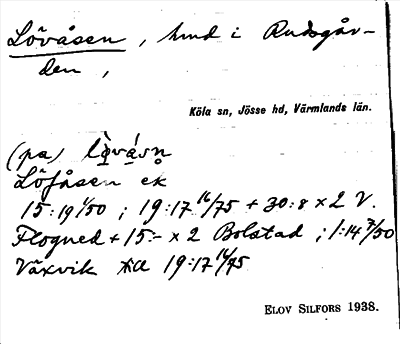 Lövåsen, hmd i Rudsgår-
den,
Köla sn, Jösse hd, Värmlands län.
(pa) lö̀vásn̥
Löfåsen ek
15:19 1/50 ; 19:17 16/75 + 30:8 x 2 V.
Flogned + 15:- x 2 Bolstad ; 1:14 7/50
Växvik till 19:17 16/75
ELOV SILFORS 1938.